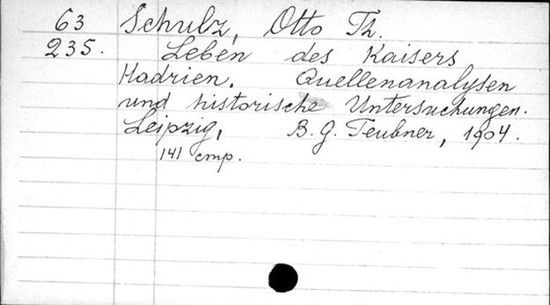 63 Schulz, Otto Th.
235. Leben des Kaisers
Hadrien. Quellenanalysen
und historische Untersuchungen.
Leipzig, B. G. Teubner, 1904.
141 стр.